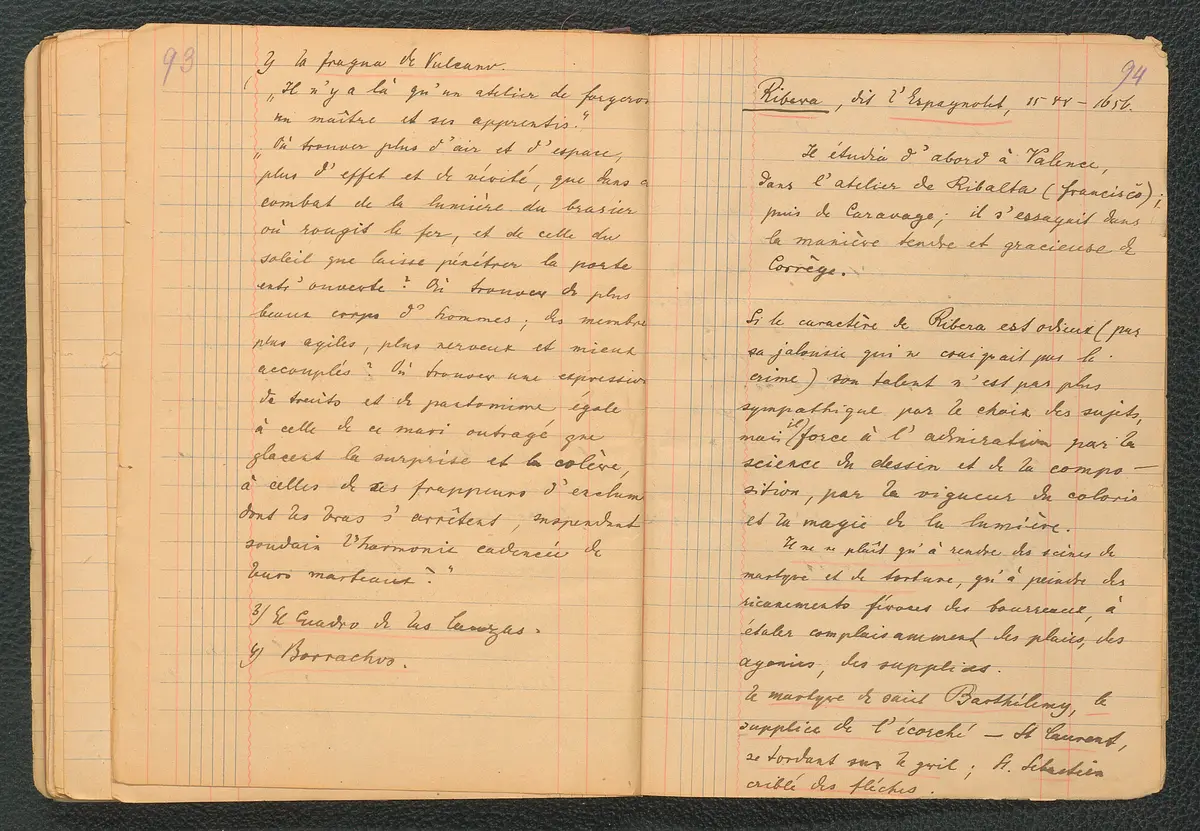 93
2) La fragua de Vulcano.
"Il n'y a là qu'un atelier de forgeron
un maître et ses apprentis."
"Où trouver plus d'air et d'espace,
plus d'effet et de vérité, que dans
combat de la lumière du brasier
où rougit le fer, et de celle du
soleil que laisse pénétrer la porte
entr'ouverte? Où trouver de plus
beaux corps d'hommes; des membre
plus agiles, plus nerveux et mieux
accouplés? Où trouver une expression
de traits et de pantomime égale
à celle de ce mari outragé que
glacent la surprise et la colère,
à celles de ses frappeurs d'enclum
dont les bras s'arrêtent, suspendant
soudain l'harmonie cadencée de
leurs marteaux?"
3) El Cuadro de las lanzas.
4) Borrachos.
94
Ribera, dit l'Espagnolet, 1588-1656.
Il étudia d'abord à Valence,
dans l'atelier de Ribalta (francisco);
puis de Caravage; il s'essayait dans
la manière tendre et gracieuse de
Corrège.
Si le caractère de Ribera est odieux (par
sa jalousie qui ne craignait pas le
crime) son talent n'est pas plus
sympathique par le choix des sujets,
mais il force à l'admiration par la
science du dessin et de la compo-
sition, par la vigueur du coloris
et la magie de la lumière.
Il ne se plaît qu'à rendre des scènes de
martyre et de torture, qu'à peindre des
ricanements féroces des bourreaux, à
étaler complaisamment des plaies, des
agonies, des supplices.
Le martyre de saint Barthélemy, le
supplice de l'écorché - St Laurent,
se tordant sur le gril; St. Sébastien
criblé des flèches.